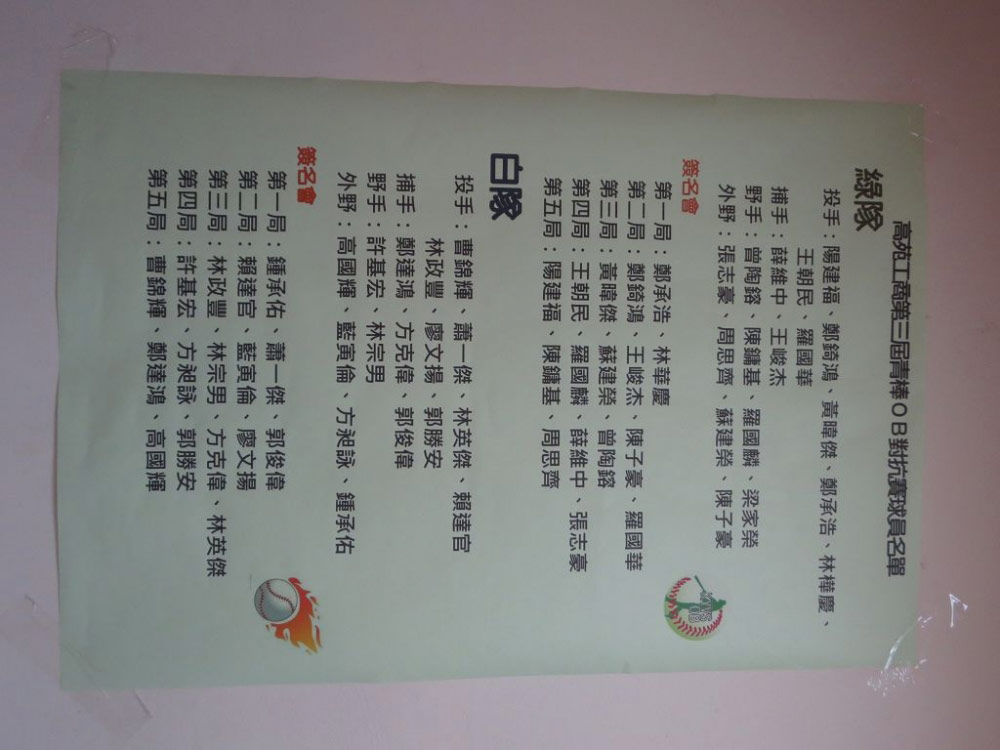 高苑工商第三屆青棒OB對抗賽球員名單
綠隊
投手：陽建福、鄭錡鴻、黃暐傑、鄭承浩、林樺慶、
王朝民、羅國華
捕手：薛維中、王峻杰
野手：曾陶鎔、陳鏞基、羅國麟、梁家榮
外野：張志豪、周思齊、蘇建榮、陳子豪
簽名會
第一局：鄭承浩、林華慶
第二局：鄭錡鴻、王峻杰、陳子豪、羅國華
第三局：黃暐傑、蘇建榮、曾陶鎔
第四局：王朝民、羅國麟、薛維中、張志豪
第五局：陽建福、陳鏞基、周思齊
白隊
投手：曹錦輝、蕭一傑、林英傑、賴達官
林政豐、廖文揚、郭勝安
捕手：鄭達鴻、方克偉、郭俊偉
野手：許基宏、林宗男
外野：高國輝、藍寅倫、方昶詠、鍾承佑
簽名會
第一局：鍾承佑、蕭一傑、郭俊偉
第二局：賴達官、藍寅倫、廖文揚
第三局：林政豐、林宗男、方克偉、林英傑
第四局：許基宏、方昶詠、郭勝安
第五局：曹錦輝、鄭達鴻、高國輝